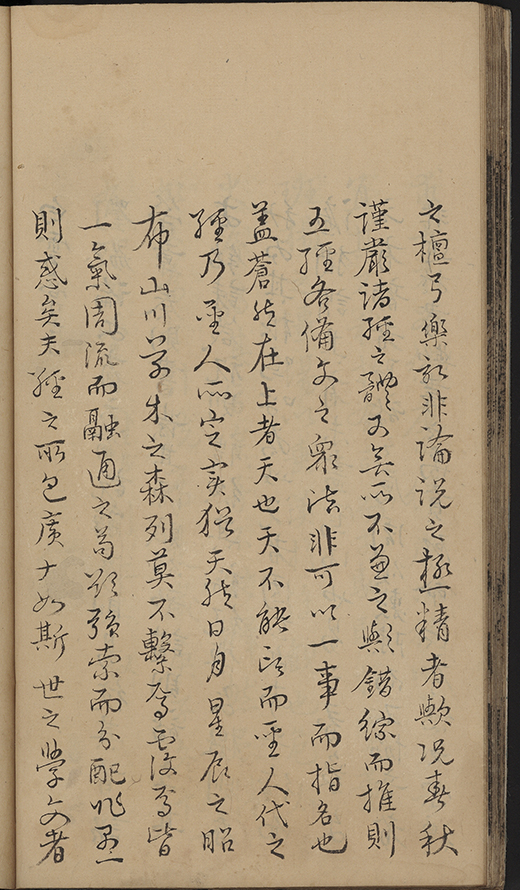 之檀弓樂記非論說之極精者歟況春秋
謹嚴諸經之體又無所不兼之歟錯綜而推則
五經各備文之衆法非可以一事而指名也
蓋蒼然在上者天也天不能言而聖人代之
經乃聖人所定實猶天然日月星辰之昭
布山川草木之森列莫不繫焉覆焉皆
一氣周流而融通之苟欲強索而分配非愚
則惑矣夫經之所包廣大如斯世之學文者